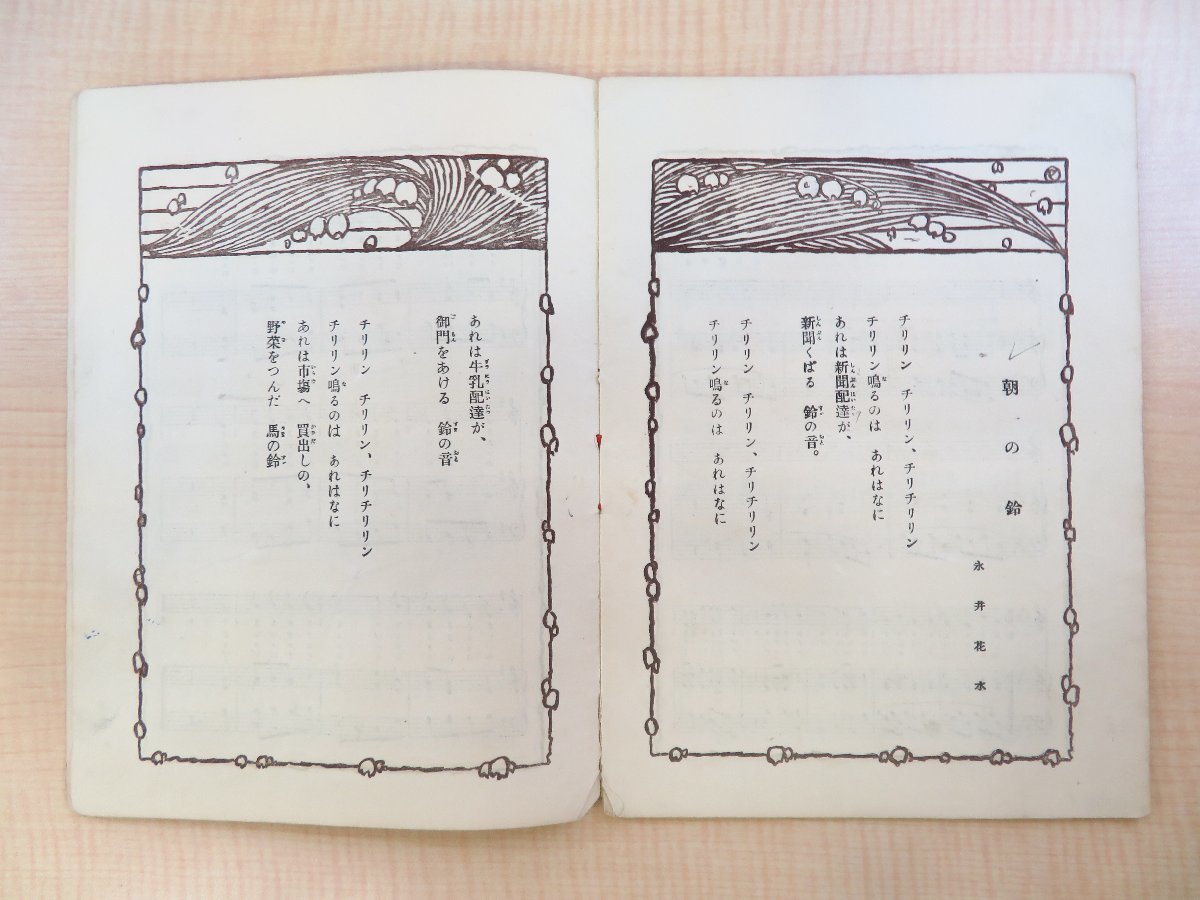 朝の鈴
永井花水
チリリン　チリリン、チリチリリン
チリリン鳴るのは　あれはなに
あれは新聞配達が、
新聞くばる　鈴の音。
チリリン　チリリン、チリチリリン
チリリン鳴るのは　あれはなに
あれは牛乳配達が、
御門をあける　鈴の音
チリリン　チリリン、チリチリリン
チリリン鳴るのは　あれはなに
あれは市場へ　買出しの、
野菜をつんだ　馬の鈴